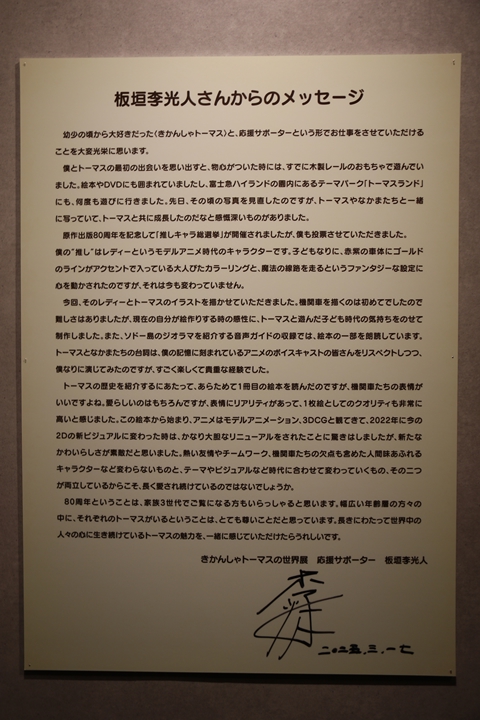 板垣李光人さんからのメッセージ
幼少の頃から大好きだった〈きかんしゃトーマス〉と、応援サポーターという形でお仕事をさせていただける
ことを大変光栄に思います。
僕とトーマスの最初の出会いを思い出すと、物心がついた時には、すでに木製レールのおもちゃで遊んでい
ました。絵本やDVDにも囲まれていましたし、富士急ハイランドの園内にあるテーマパーク「トーマスランド」
にも、何度も遊びに行きました。先日、その頃の写真を見直したのですが、トーマスやなかまたちと一緒
に写っていて、トーマスと共に成長したのだなと感慨深いものがありました。
原作出版80周年を記念して「推しキャラ総選挙」が開催されましたが、僕も投票させていただきました。
僕の“推し”はレディーというモデルアニメ時代のキャラクターです。子どもなりに、赤紫の車体にゴールド
のラインがアクセントで入っている大人びたカラーリングと、魔法の線路を走るというファンタジーな設定に
心を動かされたのですが、それは今も変わっていません。
今回、そのレディーとトーマスのイラストを描かせていただきました。機関車を描くのは初めてでしたので
難しさはありましたが、現在の自分が絵作りする時の感性に、トーマスと遊んだ子ども時代の気持ちをのせて
制作しました。また、ソドー島のジオラマを紹介する音声ガイドの収録では、絵本の一部を朗読しています。
トーマスとなかまたちの台詞は、僕の記憶に刻まれているアニメのボイスキャストの皆さんをリスペクトしつつ、
僕なりに演じてみたのですが、すごく楽しくて貴重な経験でした。
トーマスの歴史を紹介するにあたって、あらためて1冊目の絵本を読んだのですが、機関車たちの表情が
いいですよね。愛らしいのはもちろんですが、表情にリアリティがあって、1枚絵としてのクオリティも非常に
高いと感じました。この絵本から始まり、アニメはモデルアニメーション、3DCGと観てきて、2022年に今の
2Dの新ビジュアルに変わった時は、かなり大胆なリニューアルをされたことに驚きはしましたが、新たな
かわいらしさが素敵だと思いました。熱い友情やチームワーク、機関車たちの欠点も含めた人間味あふれる
キャラクターなど変わらないものと、テーマやビジュアルなど時代に合わせて変わっていくもの、その二つ
が両立しているからこそ、長く愛され続けているのではないでしょうか。
80周年ということは、家族3世代でご覧になる方もいらっしゃると思います。幅広い年齢層の方々の
中に、それぞれのトーマスがいるということは、とても尊いことだと思っています。長きにわたって世界中の
人々の心に生き続けているトーマスの魅力を、一緒に感じていただけたらうれしいです。
きかんしゃトーマスの世界展　応援サポーター　板垣李光人
二〇二五、三、一七